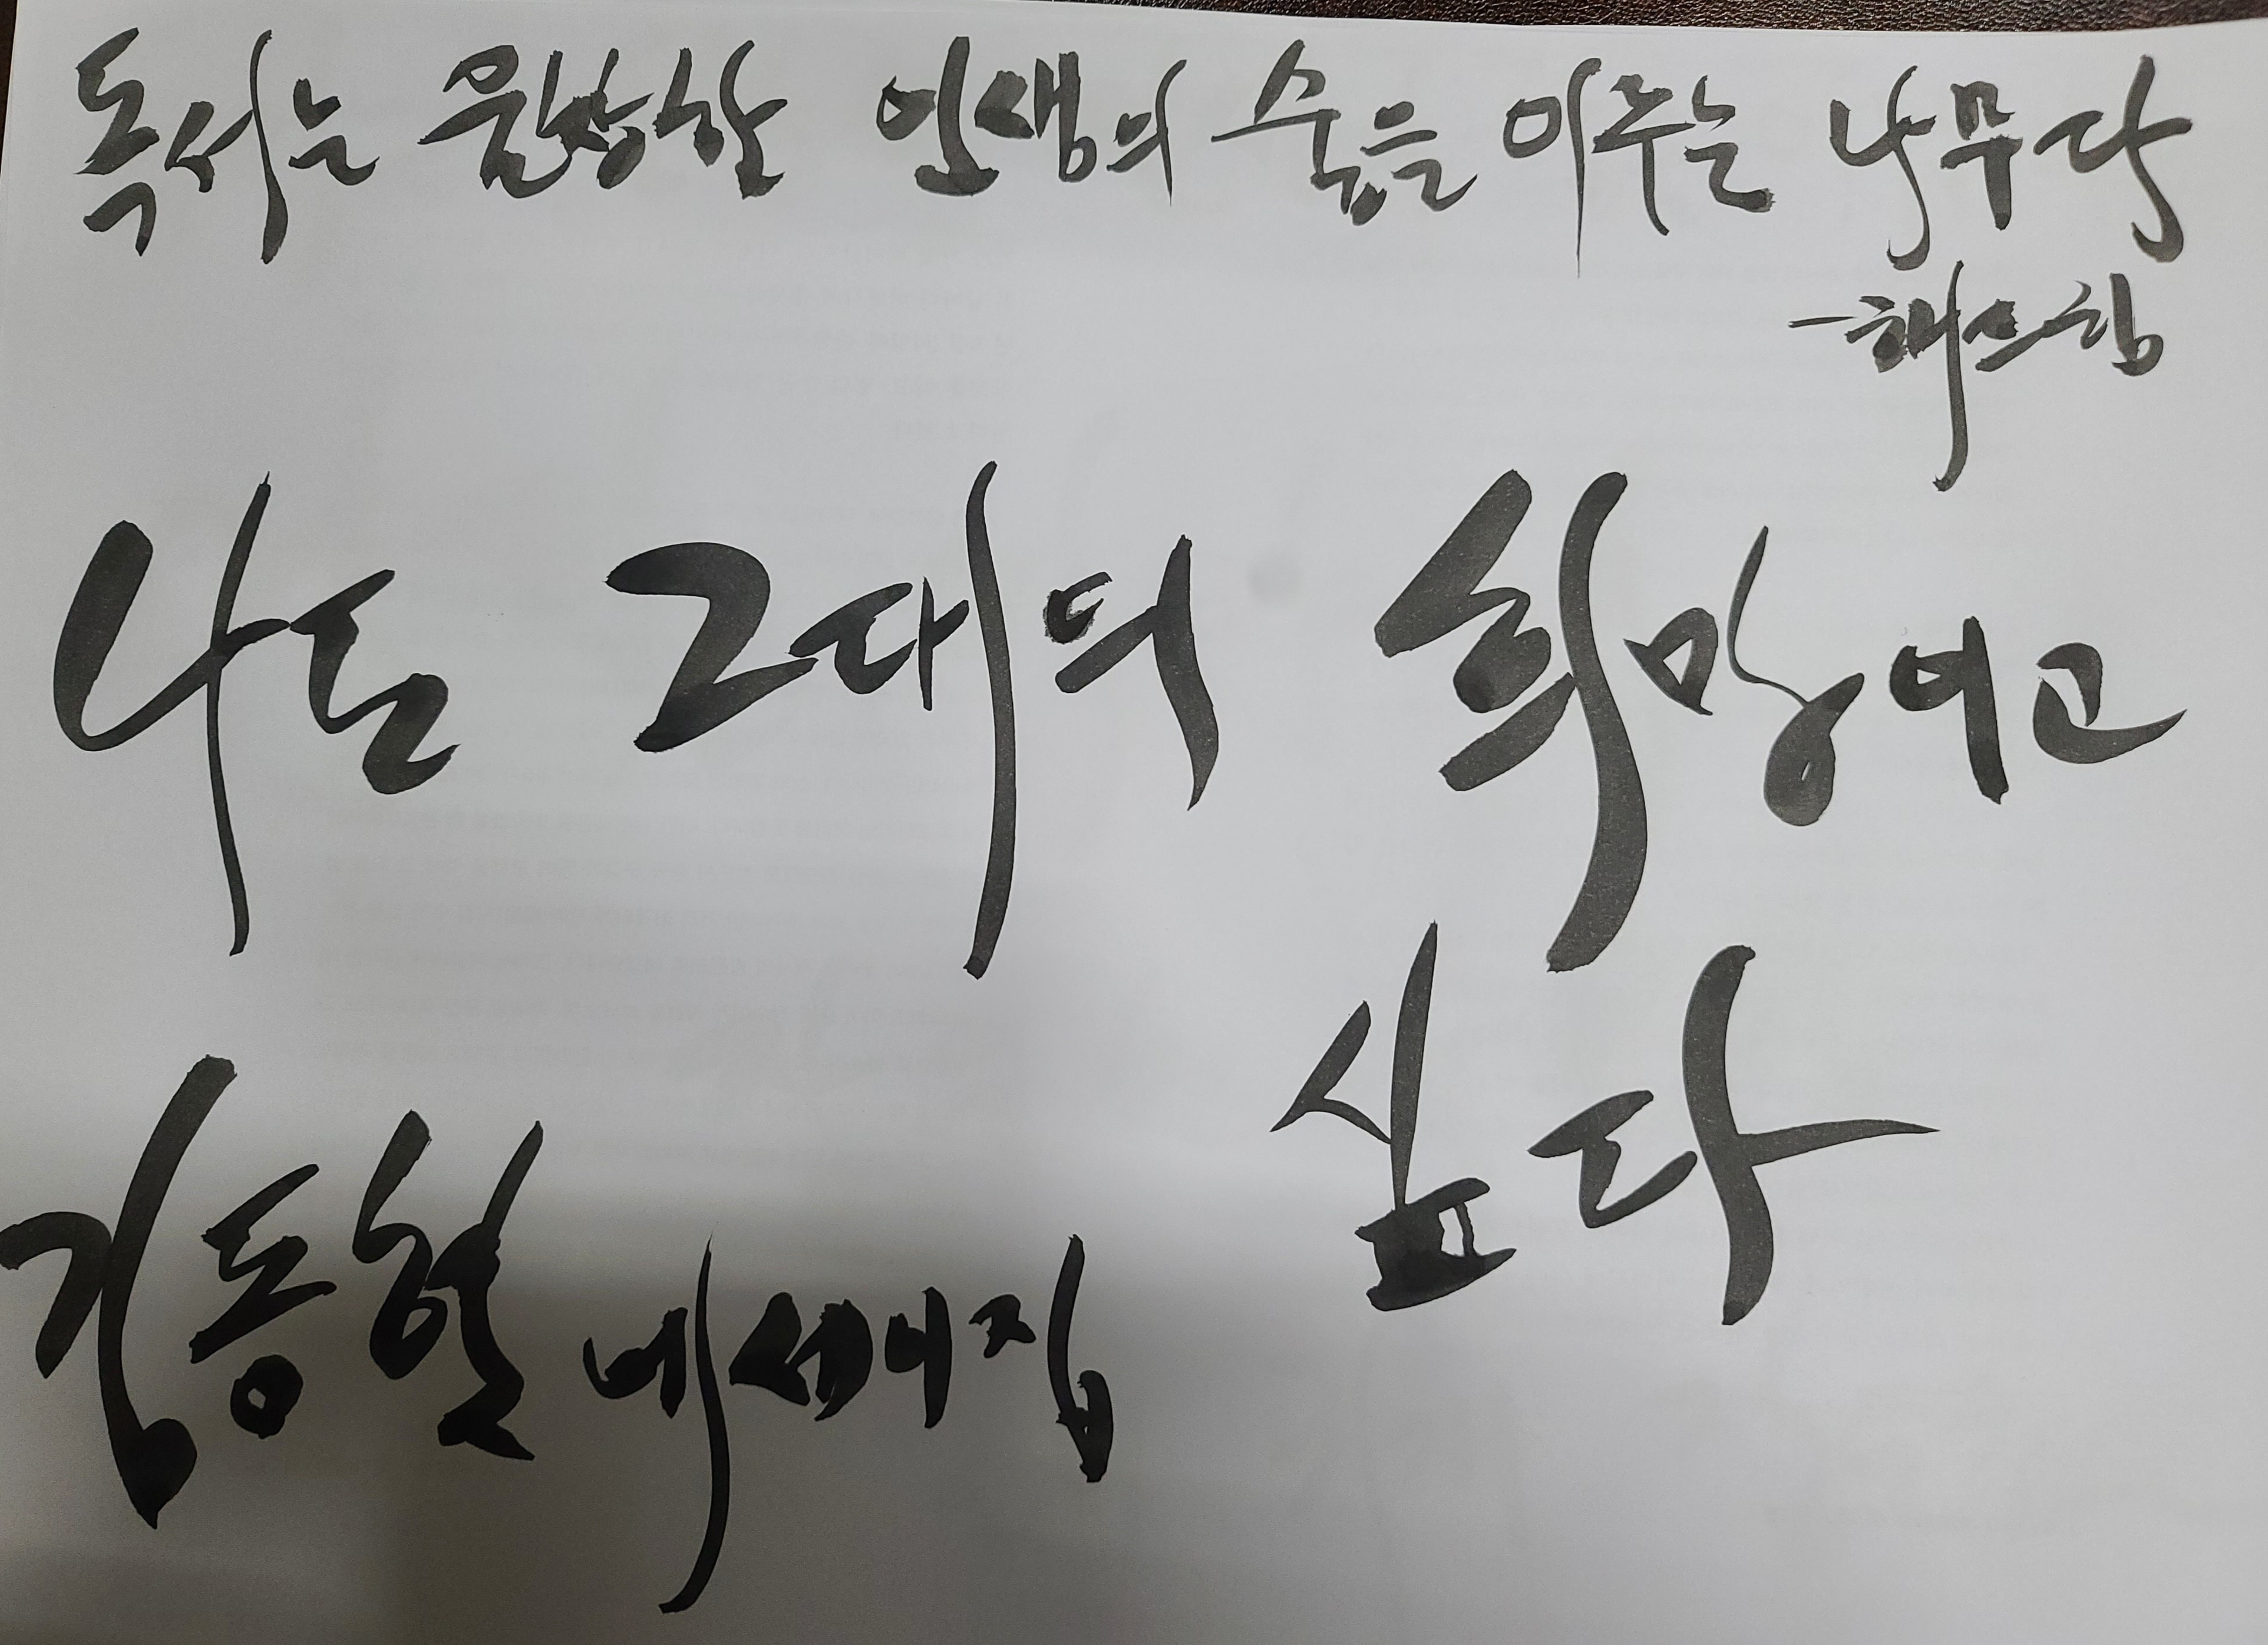 독서는 울창한 인생의 숲을 이루는 나무다
-해스림
나도 그대의 희망이고
싶다
김동현 네 세 더 집